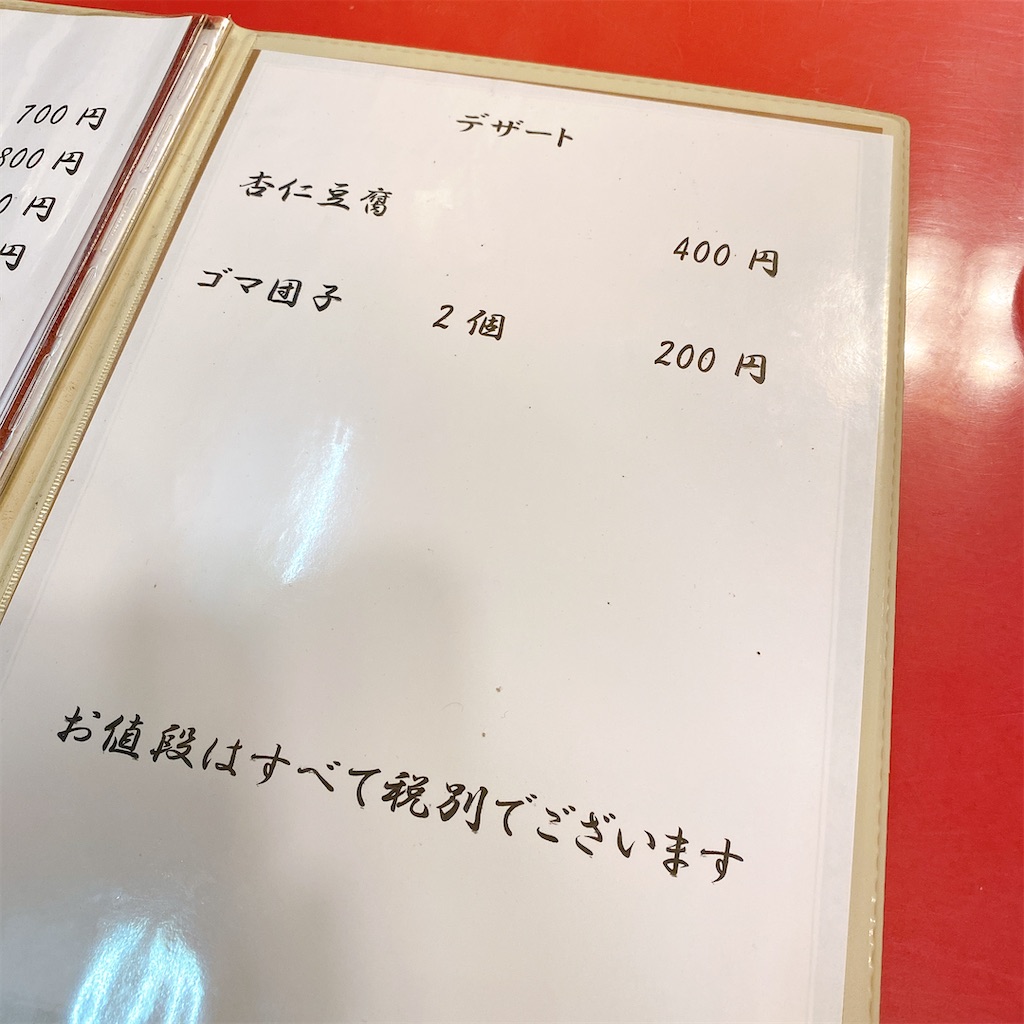 700 円
800 円
0 円
円
デザート
杏仁豆腐 400 円
ゴマ団子 2 個 200 円
お値段はすべて税別でございます